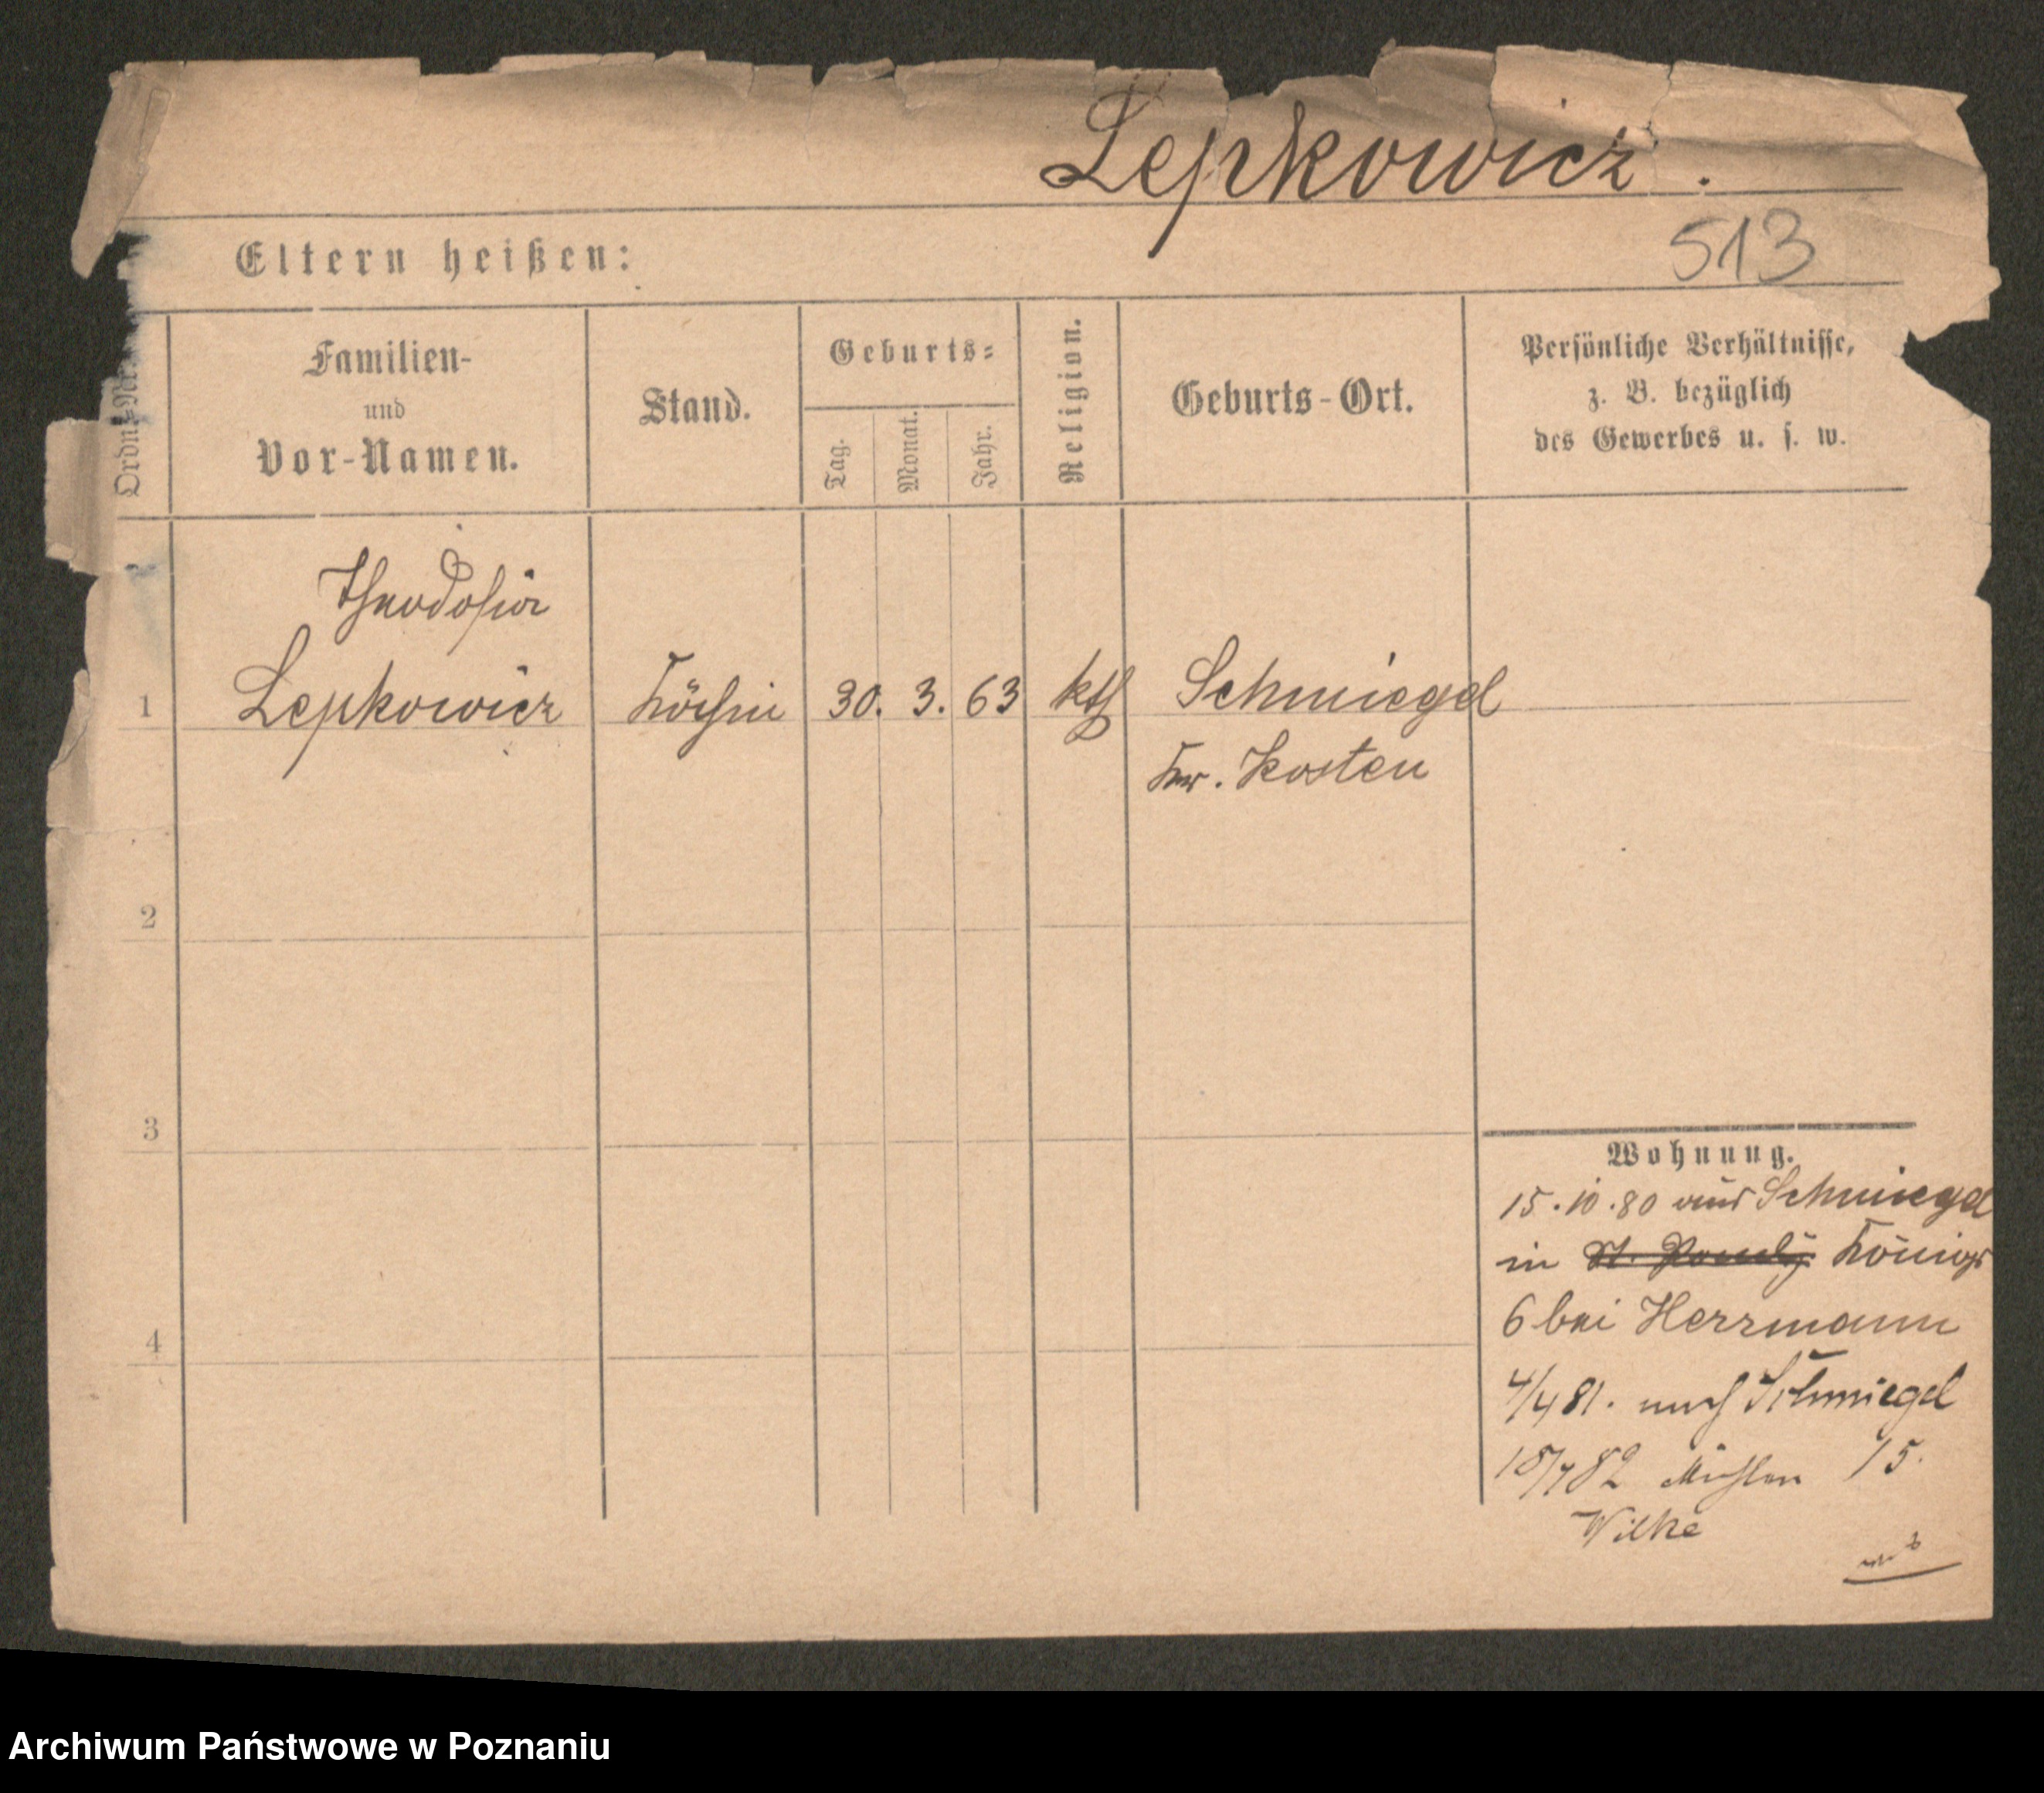 Lepkowicz.
513
Eltern heißen:
Ordn.-Nr.
Familien-
und
Vor-Namen.
Stand.
Geburts-
Tag.
Monat.
Jahr.
Religion.
Geburts-Ort.
Persönliche Verhältnisse,
z. B. bezüglich
des Gewerbes u. s. w.
Theodosia
1 Lepkowicz Köchin 30. 3. 63 kth Schmiegel
Kr. Kosten
2
3
4
Wohnung.
15.10.80 aus Schmiegel
in Königs
6 bei Herrmann
4/4 81. nach Schmiegel
18/7 82 Mühlen 15.
Wilke
Archiwum Państwowe w Poznaniu